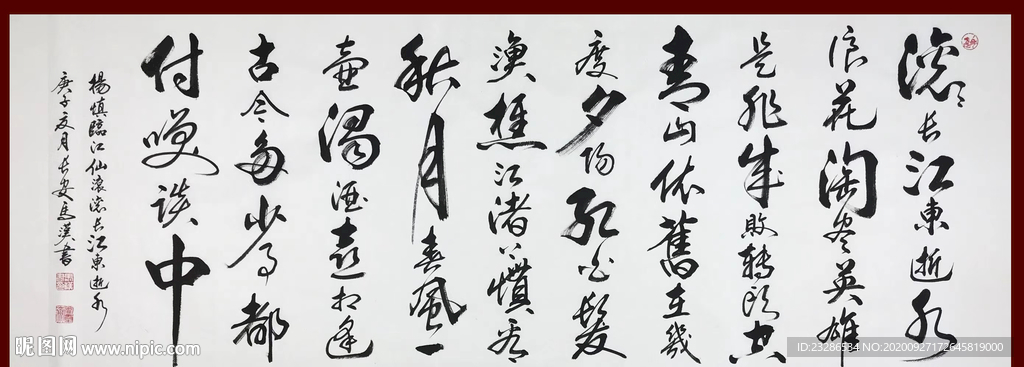 滚滚长江東逝水
浪花淘尽英雄
是非成敗转头空
青山依舊在幾
度夕阳红白髮
漁樵江渚上慣看
秋月春風一
壶濁酒喜相逢
古今多少事都
付笑谈中
楊慎臨江仙滚滚长江東逝水
庚子夏月长安馬漢書
昵图网 www.nipic.com
ID:23286584 NO:20200927172645819000